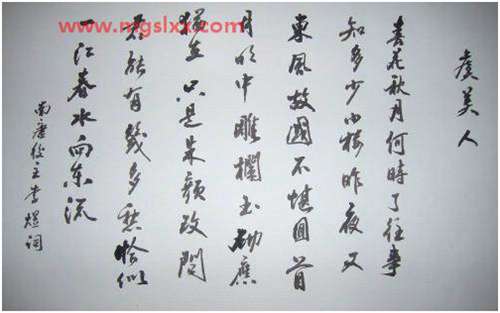 www.mgslxx.com
虞美人
春花秋月何時了往事
知多少小楼昨夜又
東風故國不堪回首
月明中雕欄玉砌應
猶在只是朱顏改問
君能有幾多愁恰似
一江春水向东流
南唐後主李煜词